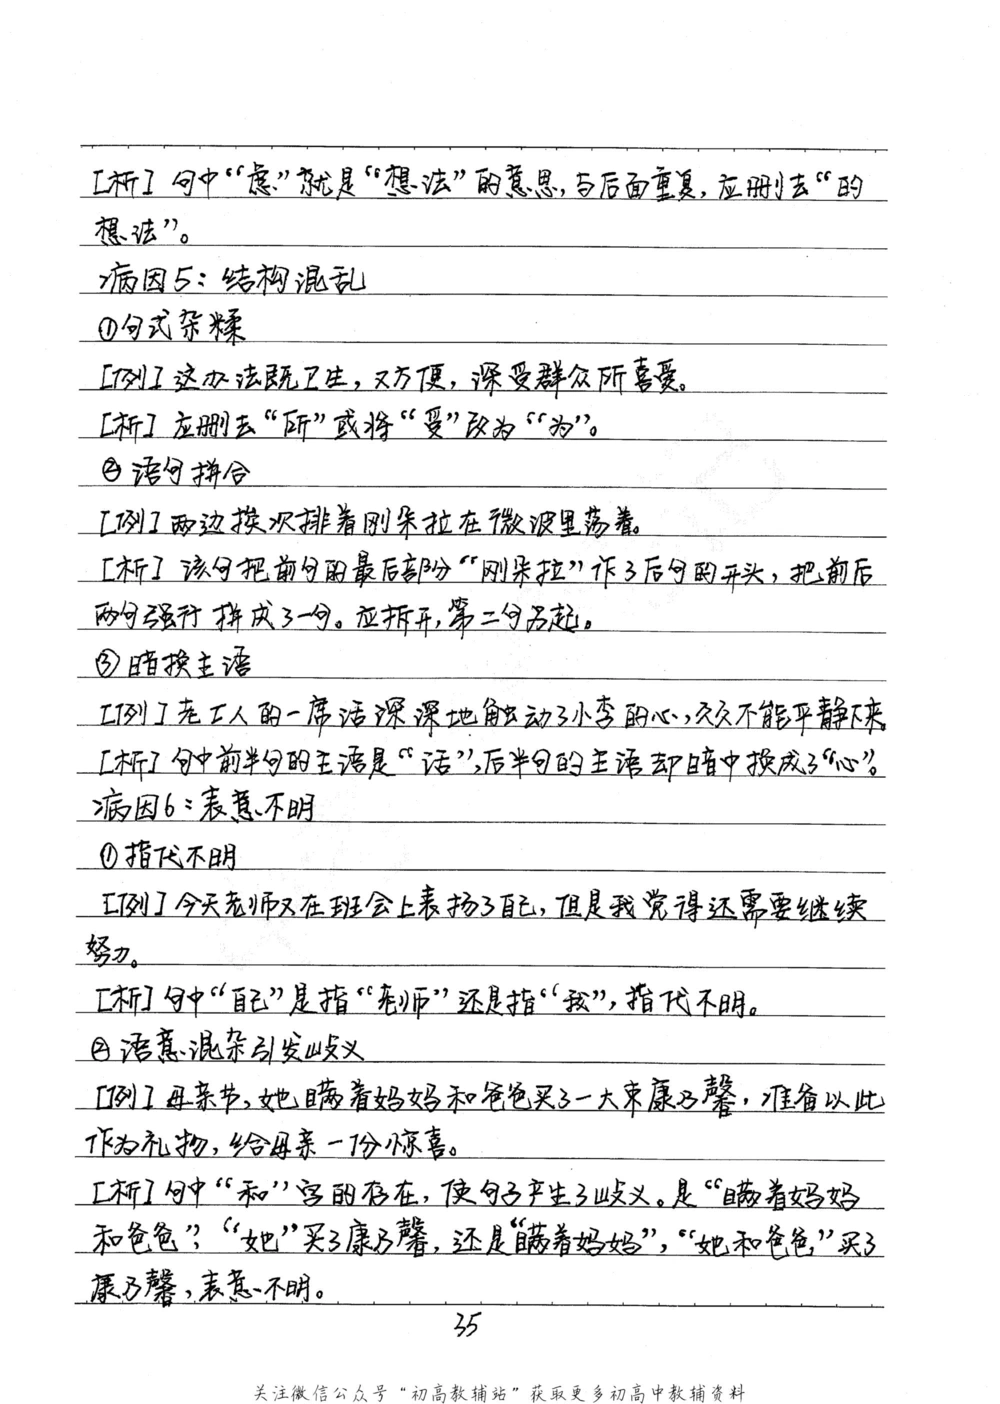 [析] 句中“虑”就是“想法”的意思,与后面重复,应删去“的
想法”。
病因5：结构混乱
①句式杂糅
[例] 这办法既卫生，又方便，深受群众所喜爱。
[析] 应删去“所”或将“受”改为“为”。
②语句拼合
[例] 两边挨次排着刚朵拉在微波里荡着。
[析] 该句把前句的最后部分“刚朵拉”作了后句的开头，把前后
两句强行拼成了一句。应拆开,第二句另起。
③暗换主语
[例] 老工人的一席话深深地触动了小李的心,久久不能平静下来。
[析] 句中前半句的主语是“话”,后半句的主语却暗中换成了“心”。
病因6：表意不明
①指代不明
[例] 今天老师又在班会上表扬了自己，但是我觉得还需要继续
努力。
[析] 句中“自己”是指“老师”还是指“我”,指代不明。
②语意混杂引发歧义
[例] 母亲节,她瞒着妈妈和爸爸买了一大束康乃馨，准备以此
作为礼物，给母亲一份惊喜。
[析] 句中“和”字的存在，使句子产生了歧义。是“瞒着妈妈
和爸爸”，“她”买了康乃馨，还是“瞒着妈妈”，“她和爸爸”买了
康乃馨，表意不明。
35
关注微信公众号“初高教辅站”获取更多初高中教辅资料